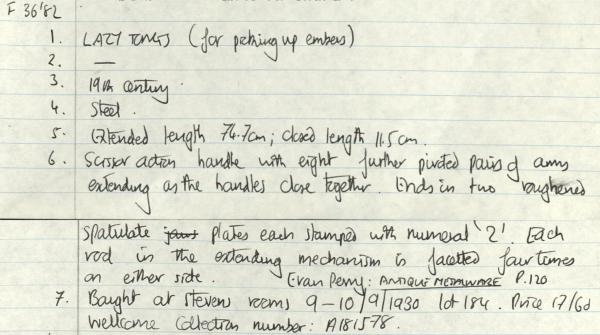 F 36'82
1. LAZY TONGS (for picking up embers)
2. —
3. 19th century.
4. Steel.
5. Extended length 74.7cm; closed length 11.5cm.
6. Scissor action handle with eight further pivoted pairs of arms
extending as the handles close together. Ends in two roughened
spatulate jaws plates each stamped with numeral '2'. Each
rod in the extending mechanism is facetted four times
on either side. Evan Perry: ANTIQUE METALWARE P.120
7. Bought at Stevens rooms 9-10/9/1930 lot 184. Price 17/6d
Wellcome Collection number: A181578.